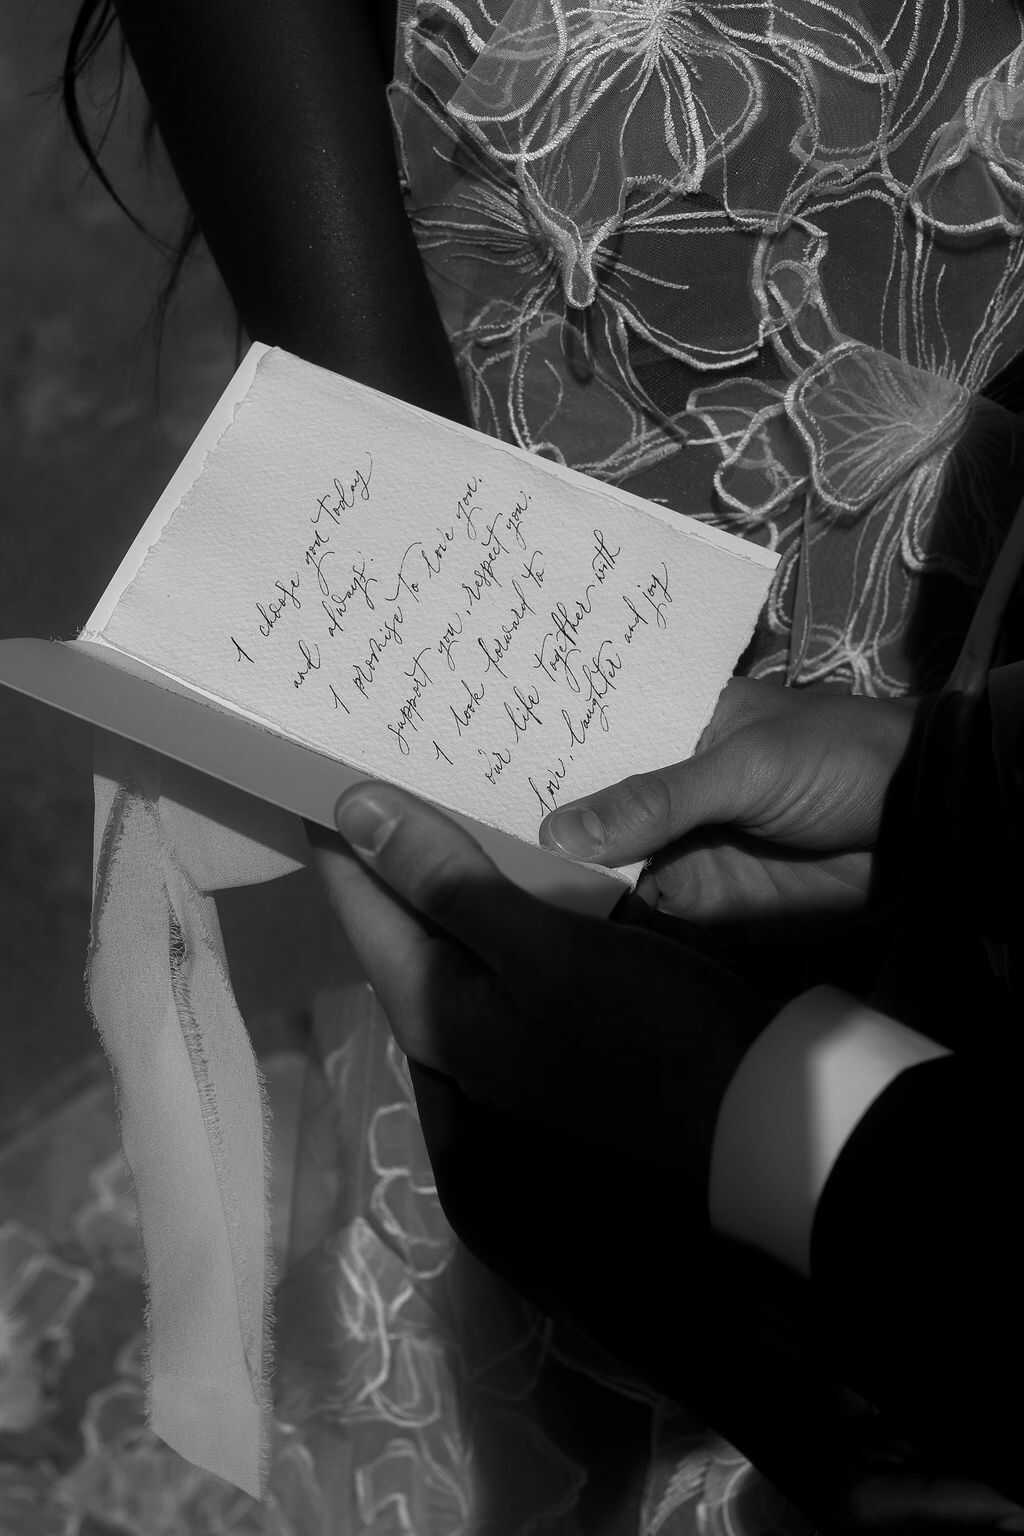 I choose you today
and always.
I promise to love you.
support you, respect you.
I look forward to
our life together with
love, laughter and joy